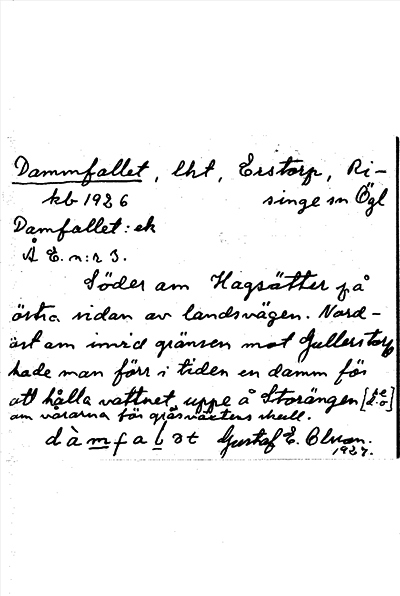 Dammfallet, lht, Erstorp, Ri-
kb 1926 singe sn Ögl
Damfallet: ek
Å E. n:r 3.
Söder om Hagsätter på
östra sidan av landsvägen. Nord-
öst om invid gränsen mot Gullerstorp
hade man förr i tiden en damm för
att hålla vattnet uppe å Storängen [se d.o]
om vårarna för gräsväxtens skull.
dàmfalət Gustaf E. Olsson.
1927.